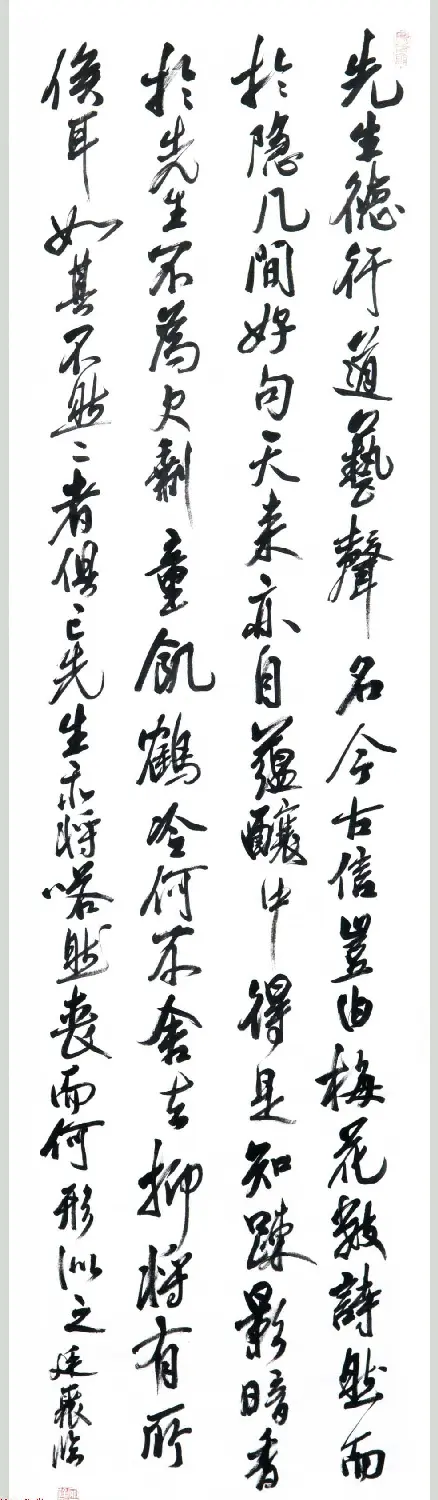 先生德行道藝聲名今古信豈由梅花數詩然而
於隐几間好句天来亦自蕴釀中得是知踈影暗香
於先生不為欠剩童飢鶴冷何不舍去抑将有所
俟耳如其不然二者俱已先生亦将嗒然丧而何形似之
廷
臨